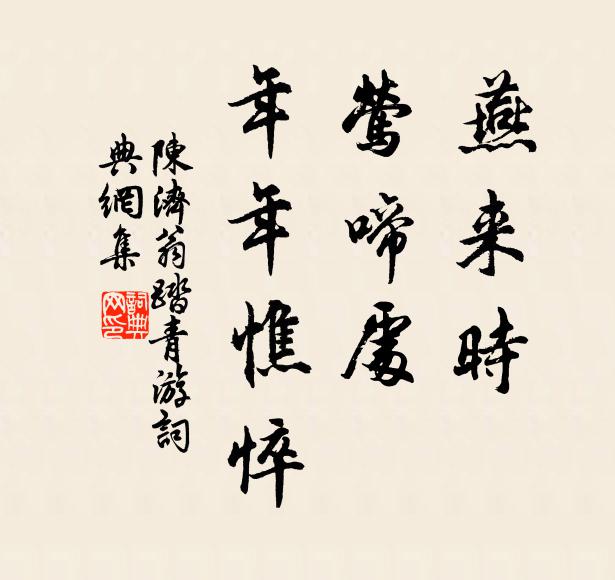 燕来時
鶯啼處
年年憔悴
陳濟翁踏青游詞
典網集
詞典网印